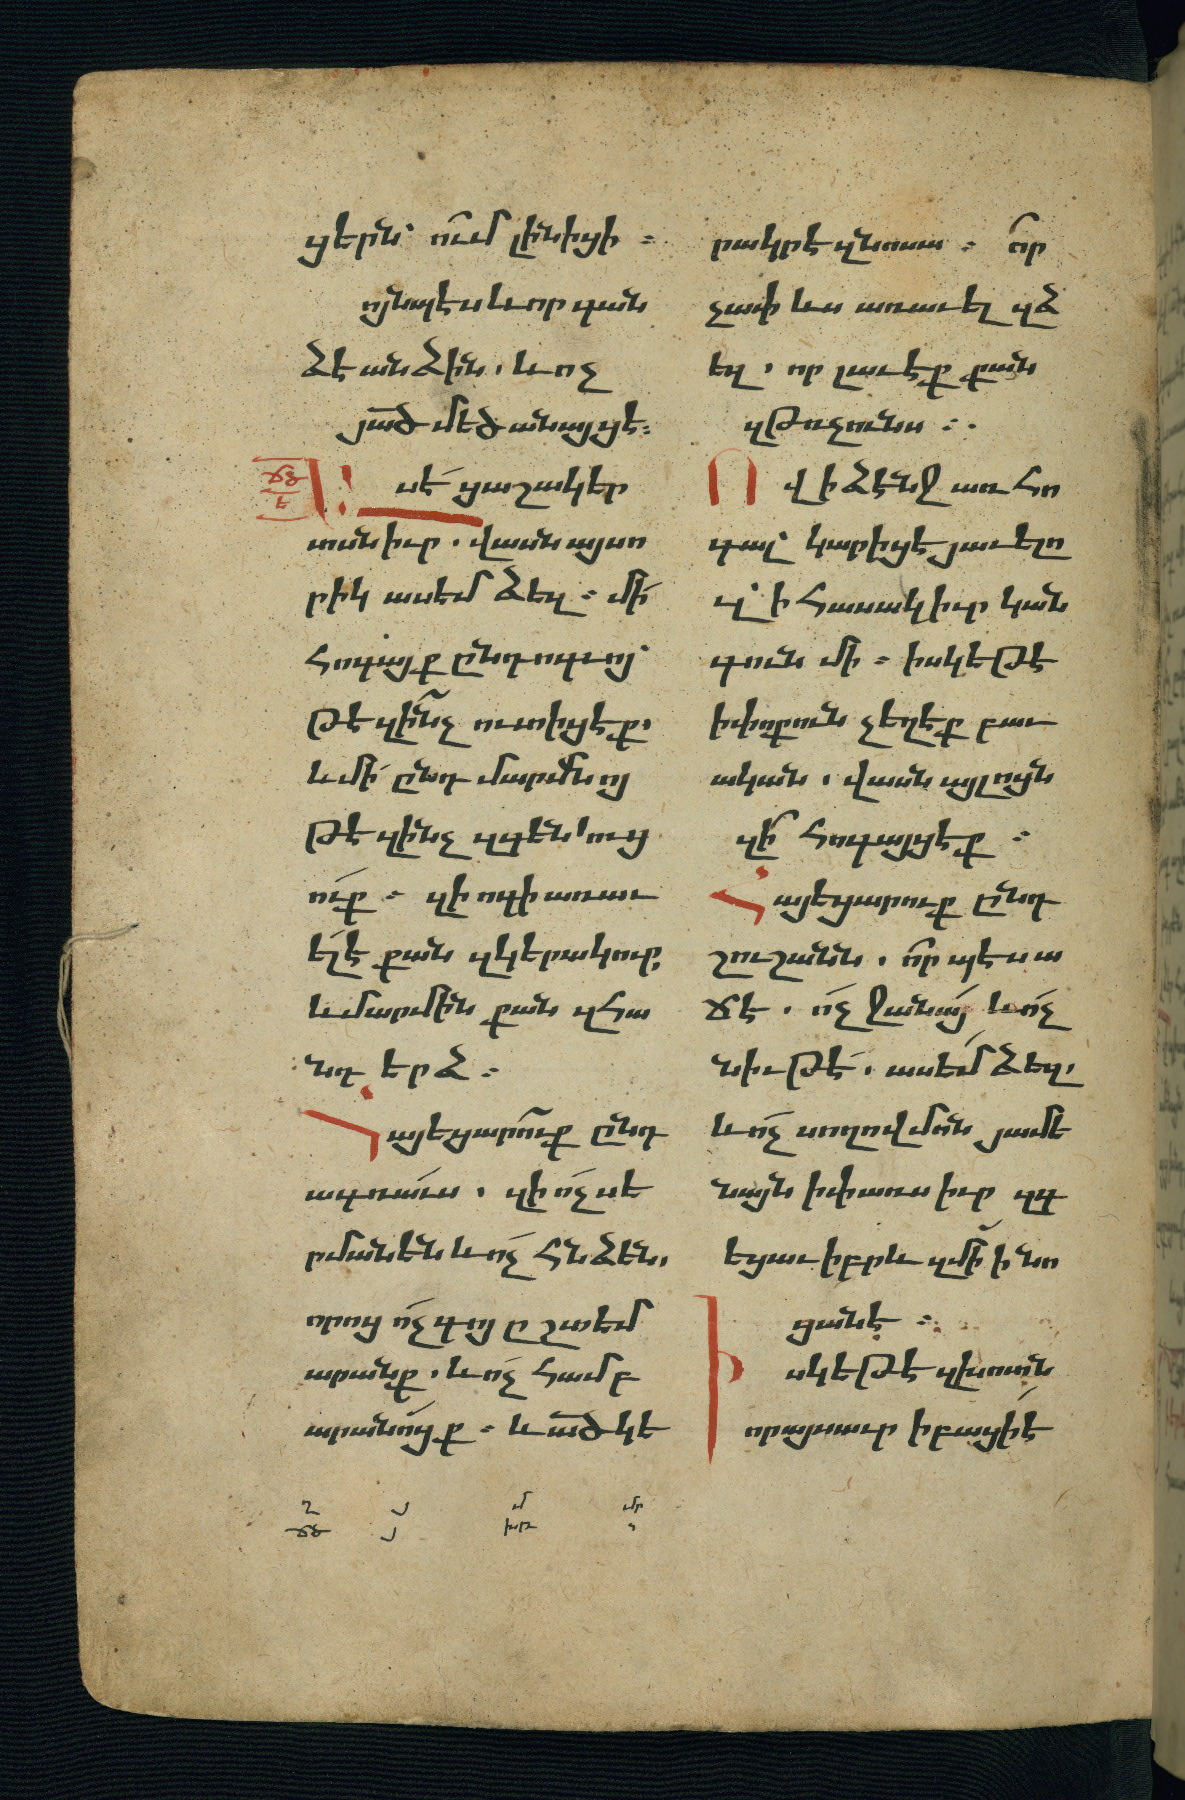 ցերն՝ ո՞ւմ լինիցի ։
ոյնպէս և որ գան
ձէ անձին , և ոչ
յած մեծանայցէ ։
ՃՁ
Է
Ասէ ցաշակեր
տսն իւր . վասն այսո
րիկ ասեմ ձեզ ։ մի՛
հոգայք ընդ ոգւոյ՝
թէ զի՞նչ ուտիցէք ,
և մի՛ ընդ մարմնոյ
թէ զինչ զգենուց
ո՛ւք ։ զի ոգի առաւ
ել է քան զկերակուր ,
և մարմին քան զհա
նդերձ ։
Հայեցարո՛ւք ընդ
ագռաւս . զի ո՛չ սե
րմանեն և ո՛չ հնձեն ,
որոց ո՛չ գոյ ըշտեմ
արանք , և ո՛չ համբ
արանոցք ։ և ած կե
րակրէ զնոսա ։ ո՞ր
չափ ևս առաւել զձ
եզ , որ լաւ էք քան
զթռչունս ։
Ո վ ի ձէնջ առ հո
գալ՝ կարիցէ յաւելու
լ՝ ի հասակ իւր կան
գուն մի ։ իսկ եթէ
ի փոքուն չեղէք բաւ
ական , վասն այլոյն
զի՞ հոգայցէք ։
Հայեցարուք ընդ
շուշանն , ո՞րպէս ա
ճէ . ո՛չ ջանայ և ո՛չ
նիւթէ . ասեմ ձեզ ,
և ո՛չ սողովմոն յամե
նայն ի փառս իւր զգ
եցաւ իբրև զմի ի նո
ցանէ ։
Իսկ եթէ զխոտն
որ այսաւր ի բացի է